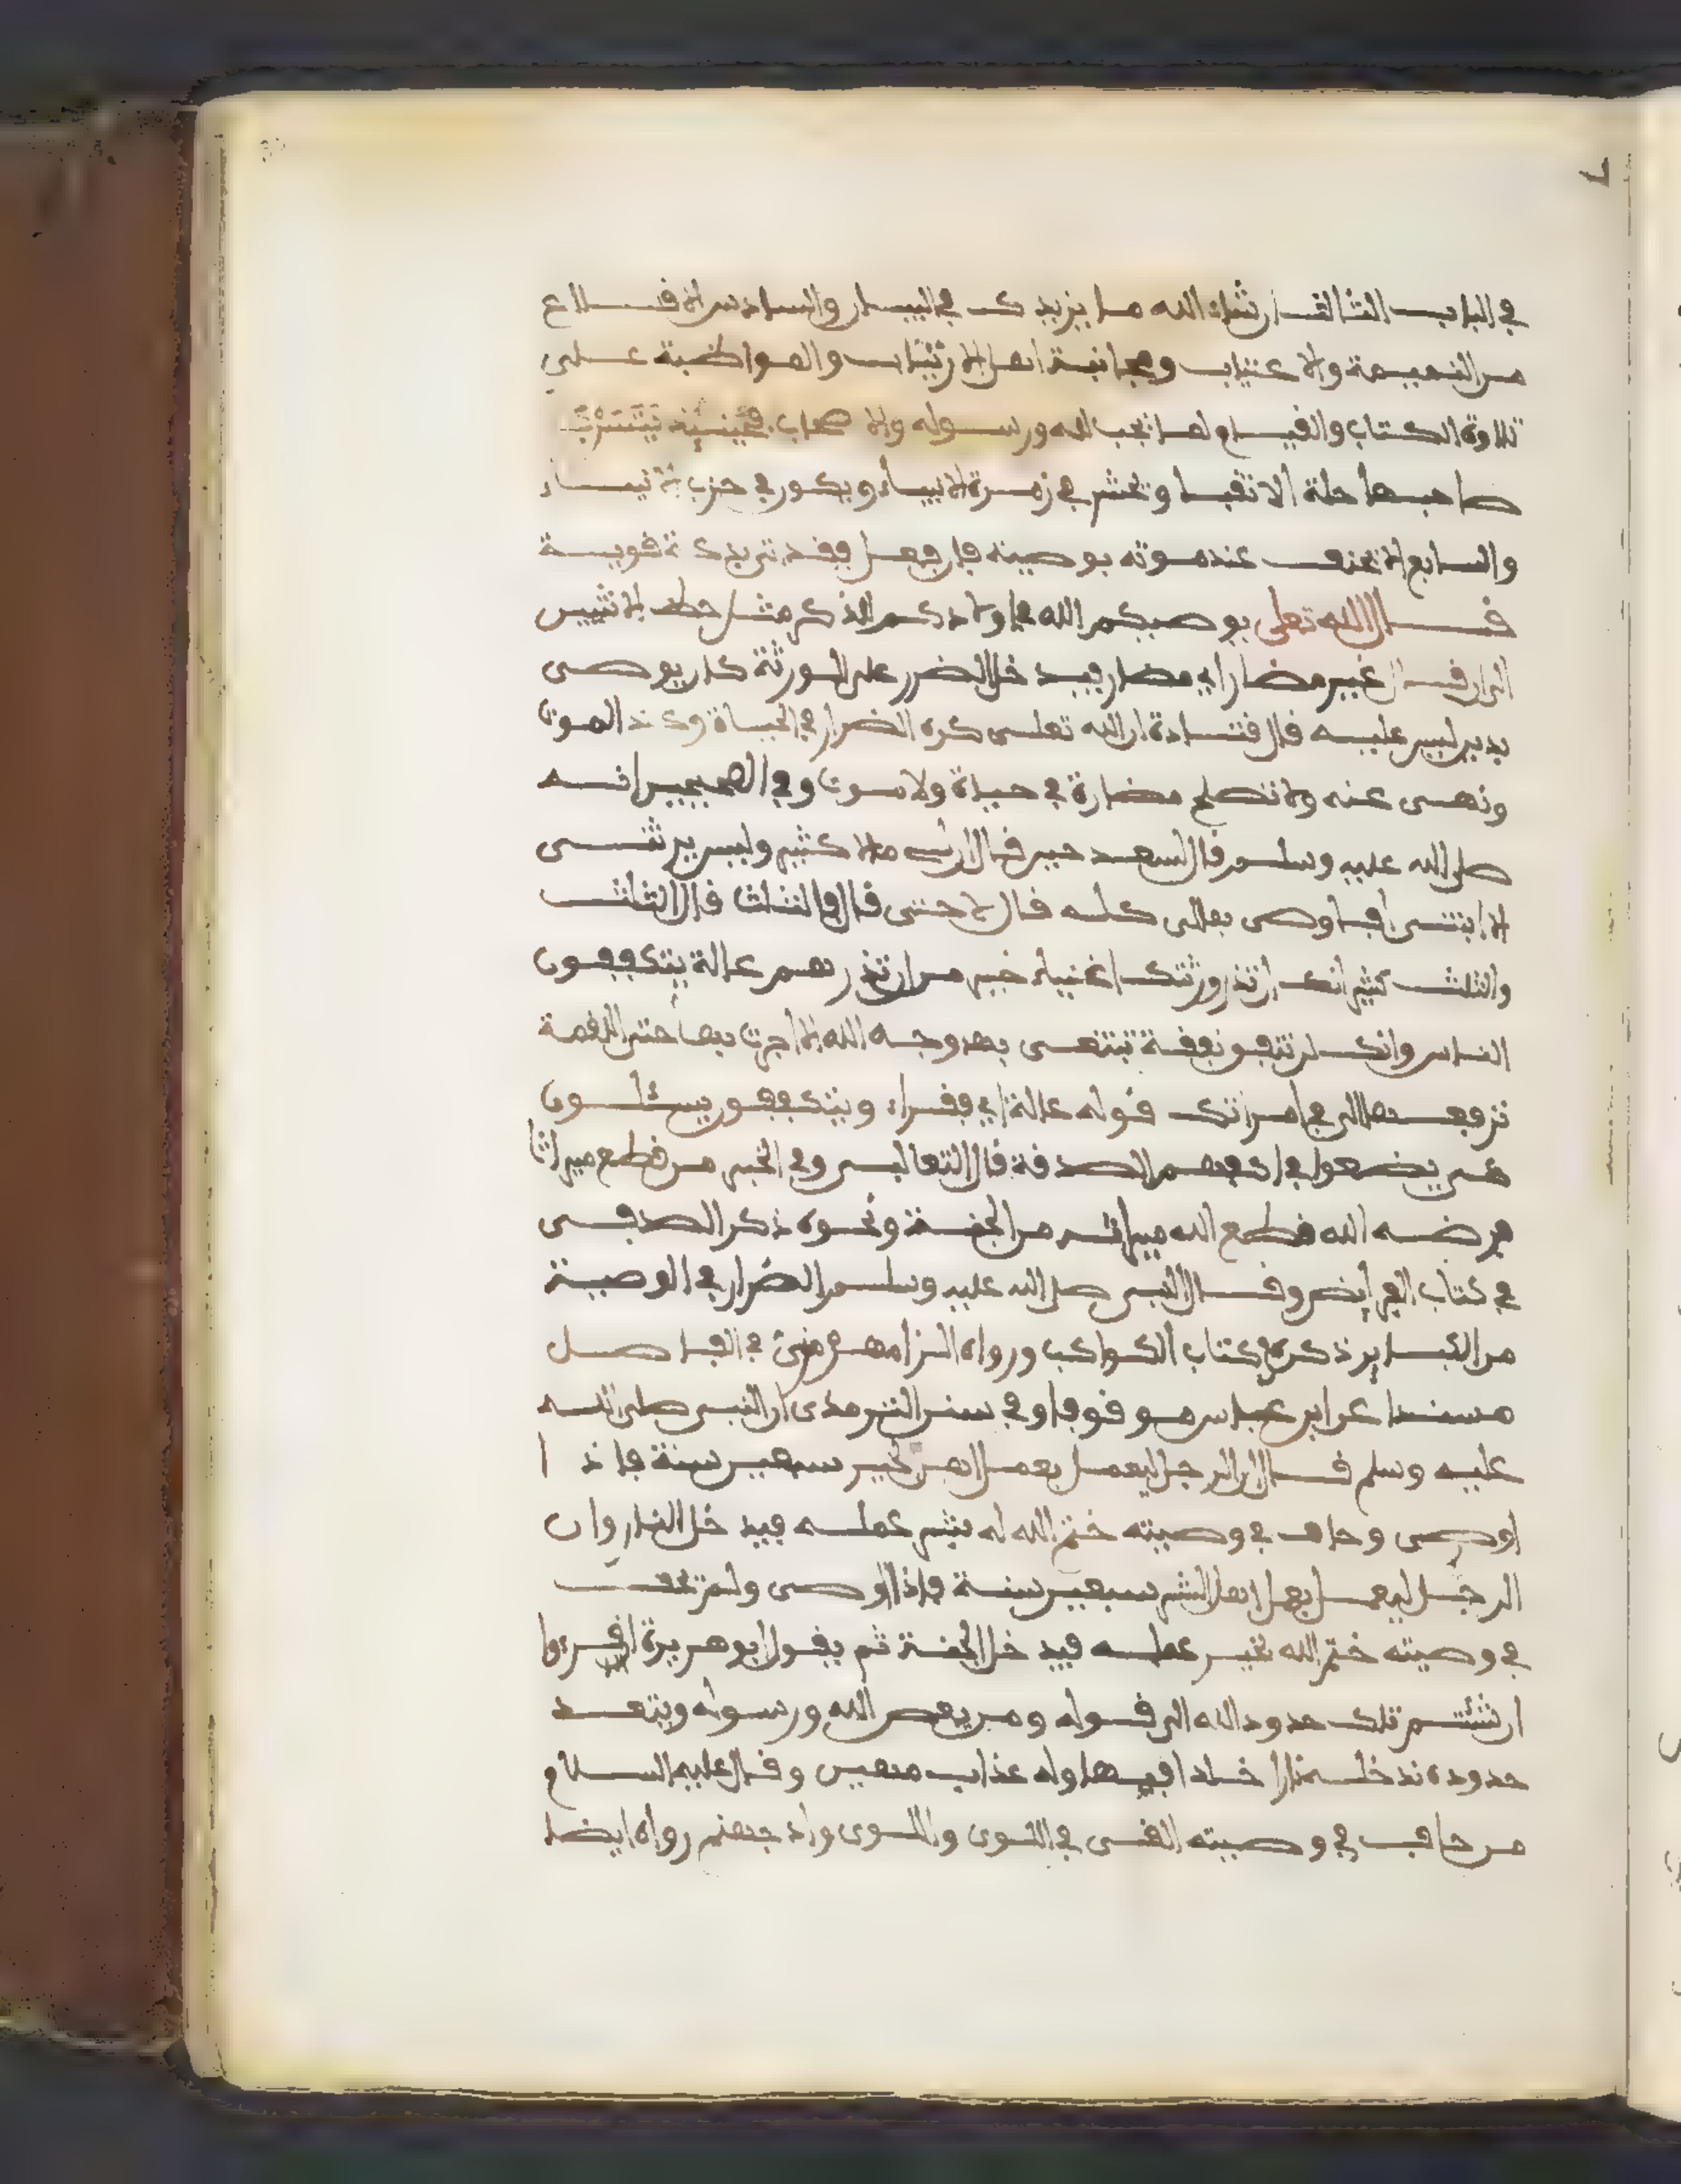 في الباب الثالث ان شاء الله ما يزيدك في البيان والسادس الاقلاع
من النميمة والاغتياب ومجانبة اهل الارتياب والمواظبة على
تلاوة الكتاب والقيام لما يحب الله ورسوله والاصحاب فحينئذ
صاحبها حلة الاتقيا ويحشر في زمرة الانبياء ويكون في حزب
والسابع الا يحيف عند موته بوصيته فان فعل فقد تزيدك قوية
قال الله تعلى يوصيكم الله في اولادكم للذكر مثل حظ الانثيين
الى ان قال غير مضار اي مضار فيدخل الضرر على الورثة كان يوصى
بدين ليس عليه قال قتادة ان الله تعلى كره الضرار في الحياة وعند الموت
ونهى عنه ولا تصلح مضارة في حياة ولا موت وفي الصحيحين انه
صلى الله عليه وسلم قال لسعد حين قال ان لي مالا كثير وليس يرثنى
الا ابنتى افاوصى بمالى كله قال لا حتى قال فالثلث قال الثلث
والثلث كثير انك ان تذر ورثتك اغنياء خير من ان تذرهم عالة يتكففون
الناس وانك لن تنفق نفقة تبتغى بها وجه الله الا اجرت بها حتى اللقمة
ترفعها الى في امراتك قوله عالة اي فقراء ويتكففون يسئلون
من يضعوا في اكفهم الصدقة قال الثعالبى وفي الخبر من قطع ميراثا
فرضه الله قطع الله ميراثه من الجنة ونحوه ذكر الصدفى
في كتاب الفرايض وقال النبى صلى الله عليه وسلم الضرار في الوصية
من الكباير ذكره في كتاب الكواكب ورواه الرامهرمزى في الفاصل
مسندا عن ابن عباس موقوفا وفي سنن الترمذى ان النبى صلى الله
عليه وسلم قال ان الرجل ليعمل بعمل اهل الخير سبعين سنة فاذا
اوصى وحاف في وصيته ختم الله له بشر عمله فيدخل النار وان
الرجل ليعمل بعمل اهل الشر سبعين سنة فاذا اوصى ولم يحف
في وصيته ختم الله بخير عمله فيدخل الجنة ثم يقول ابو هريرة اقرءوا
ان شئتم تلك حدود الله الى قوله ومن يعص الله ورسوله ويتعد
حدوده ندخله نارا خلدا فيها وله عذاب مهين وقال عليه السلام
من حاف في وصيته القى في اللوى واللوى واد جهنم رواه ايضا